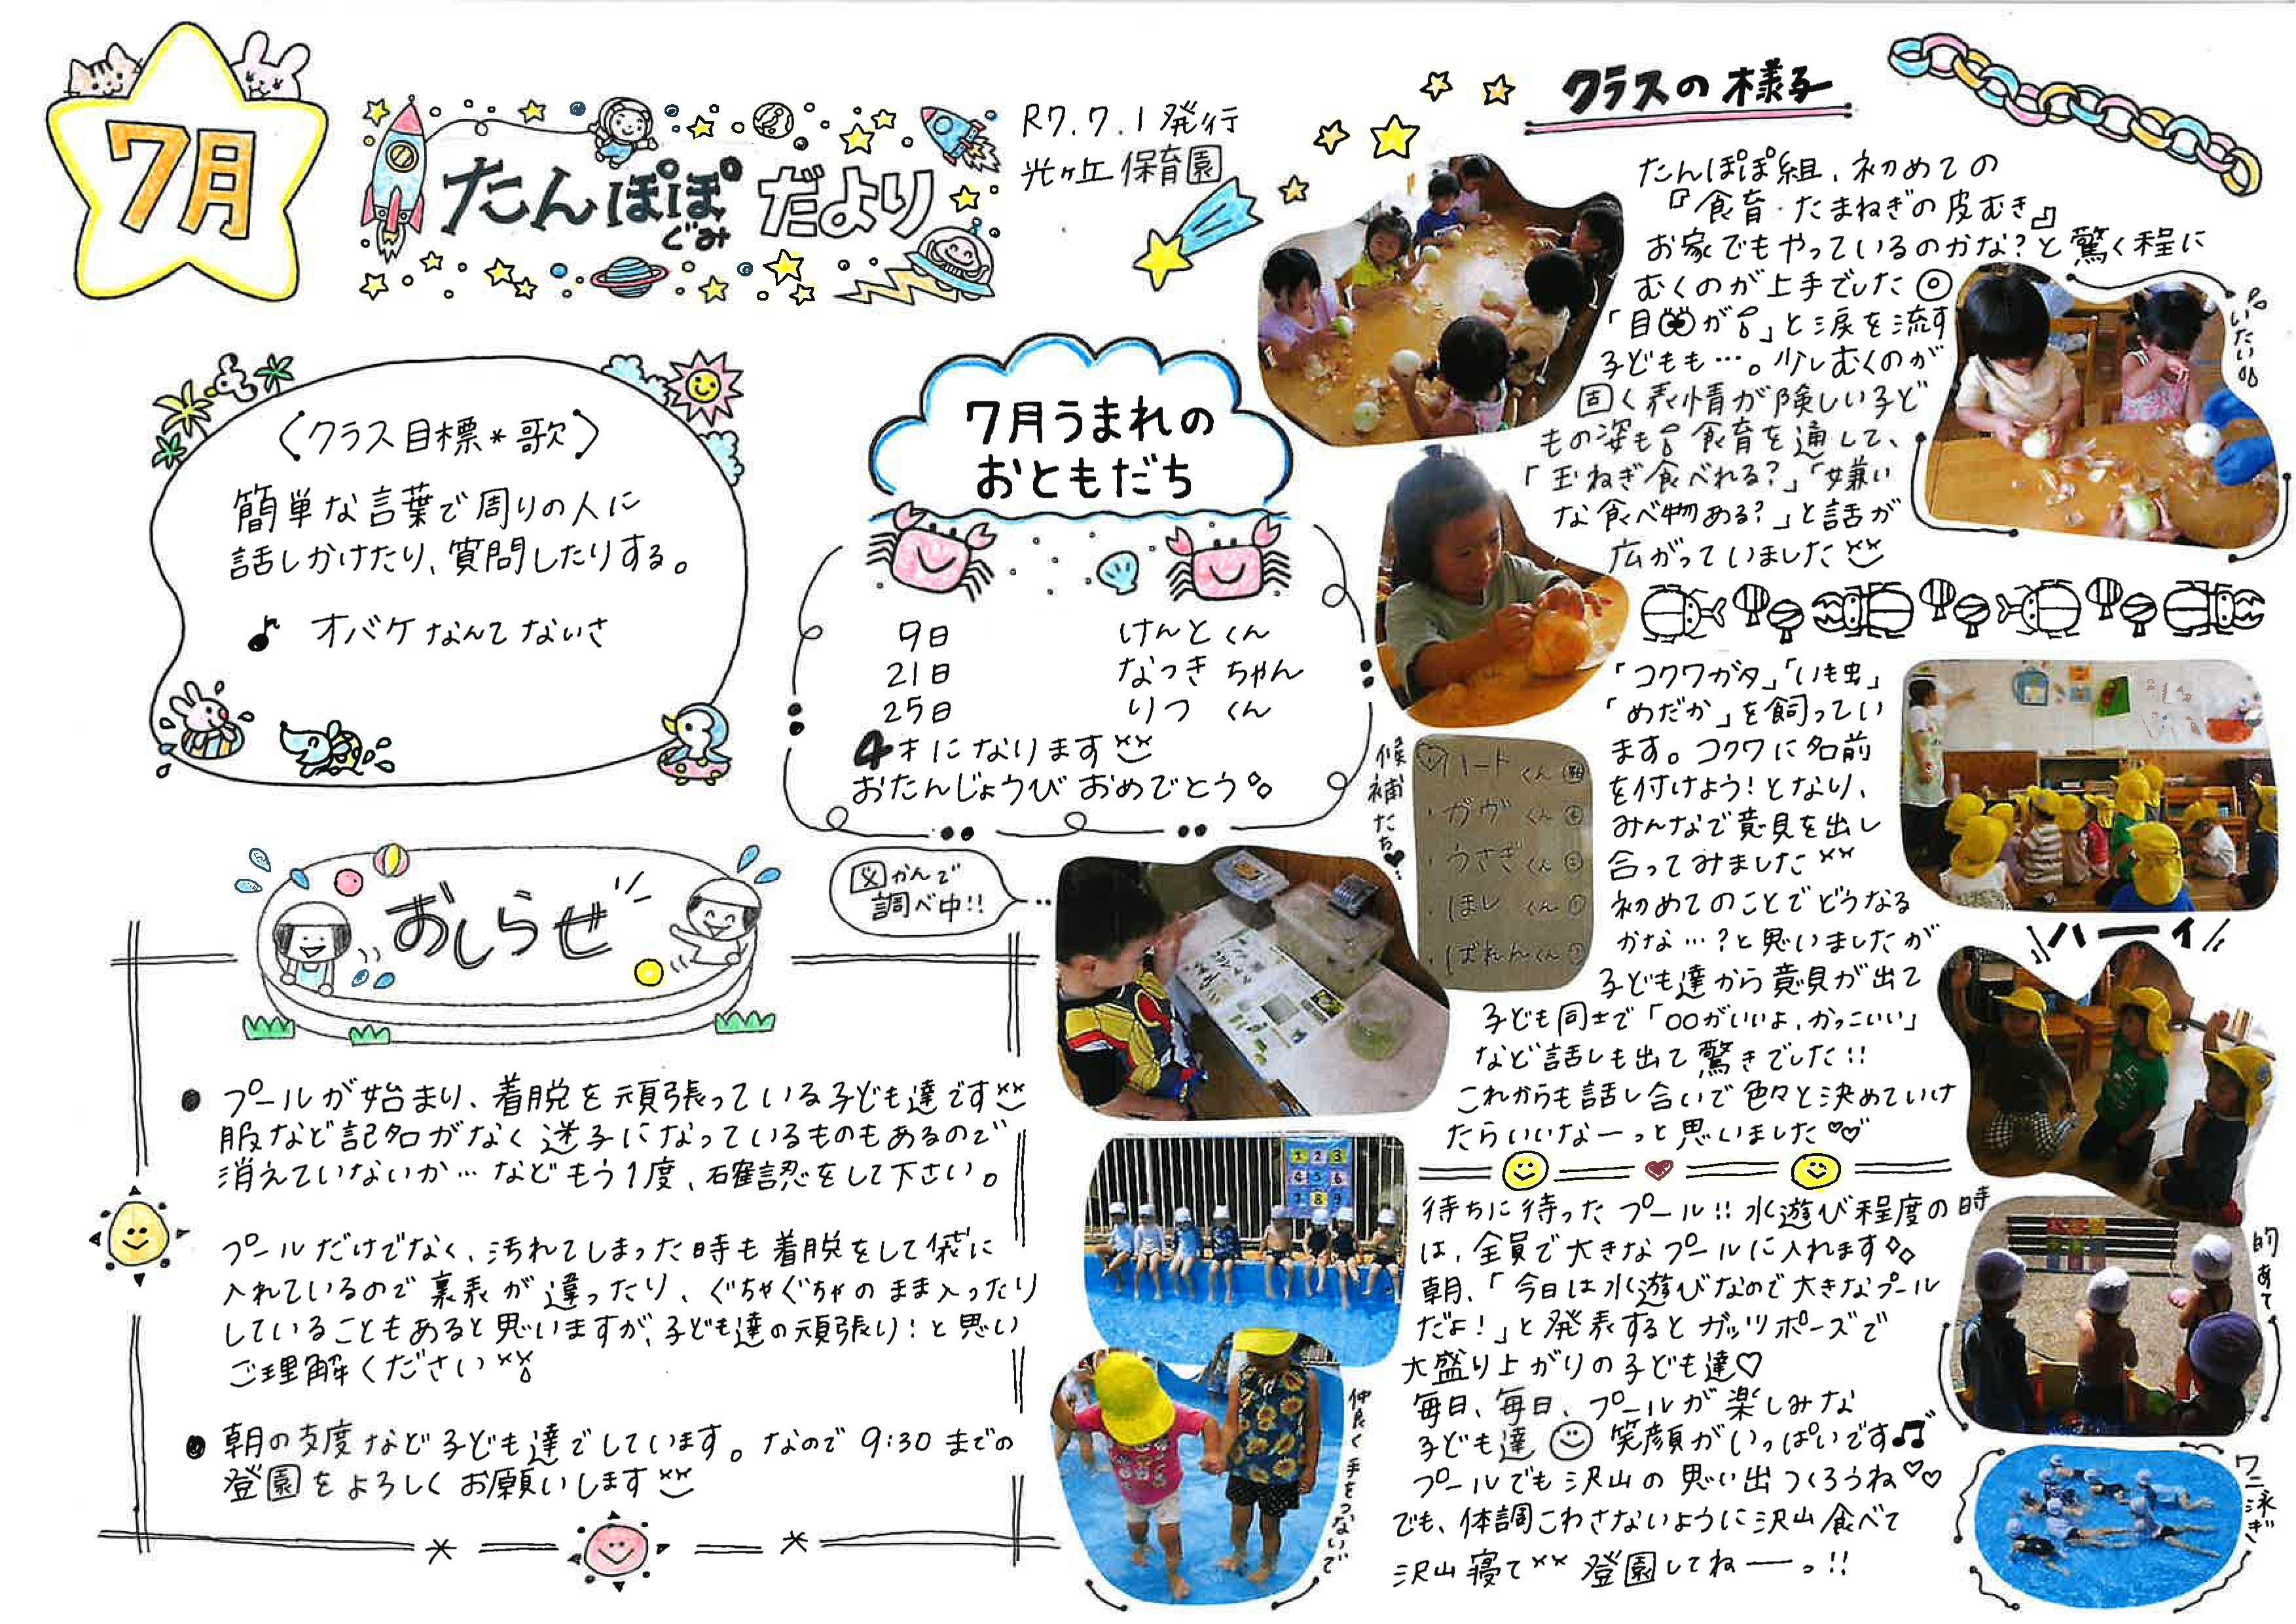 7月
たんぽぽぐみだより
R7.7.1発行
光ヶ丘保育園
〈クラス目標*歌〉
簡単な言葉で周りの人に
話しかけたり、質問したりする。
♪ オバケなんてないさ
7月うまれの
おともだち
9日 けんとくん
21日 なつきちゃん
25日 りつくん
4才になります
おたんじょうびおめでとう
おしらせ
● プールが始まり、着脱を頑張っている子ども達です
服など記名がなく迷子になっているものもあるので
消えていないか…などもう1度、確認をして下さい。
プールだけでなく、汚れてしまった時も着脱をして袋に
入れているので裏表が違ったり、ぐちゃぐちゃのまま入ったり
していることもあると思いますが、子ども達の頑張り!と思い
ご理解ください
● 朝の支度など子ども達でしています。なので9:30までの
登園をよろしくお願いします
クラスの様子
たんぽぽ組、初めての
『食育・たまねぎの皮むき』
お家でもやっているのかな?と驚く程に
むくのが上手でした◎
「目が」と涙を流す
子どもも…。少しむくのが
固く表情が険しい子ど
もの姿も 食育を通して、
「玉ねぎ食べれる?」「嫌い
な食べ物ある?」と話が
広がっていました
いたい
「コクワガタ」「いも虫」
「めだか」を飼ってい
ます。コクワに名前
を付けよう!となり、
みんなで意見を出し
合ってみました
初めてのことでどうなる
かな…?と思いましたが
子ども達から意見が出て
子ども同士で「○○がいいよ、かっこいい」
など話しも出て驚きでした!!
これからも話し合いで色々と決めていけ
たらいいなーっと思いました♡♡
候補たち♥
♡ハートくん
・ガヴくん
・うさぎくん
・ほしくん
・ばれんくん
図かんで
調べ中!!
ハーイ
待ちに待ったプール!!水遊び程度の時
は、全員で大きなプールに入れます
朝、「今日は水遊びなので大きなプール
だよ!」と発表するとガッツポーズで
大盛り上がりの子ども達♡
毎日、毎日、プールが楽しみな
子ども達 笑顔がいっぱいです♫
プールでも沢山の思い出つくろうね♡♡
でも、体調こわさないように沢山食べて
沢山寝て 登園してねーっ!!
1 2 3
4 5 6
7 8 9
仲良く手をつないで
的あて
ワニ泳ぎ